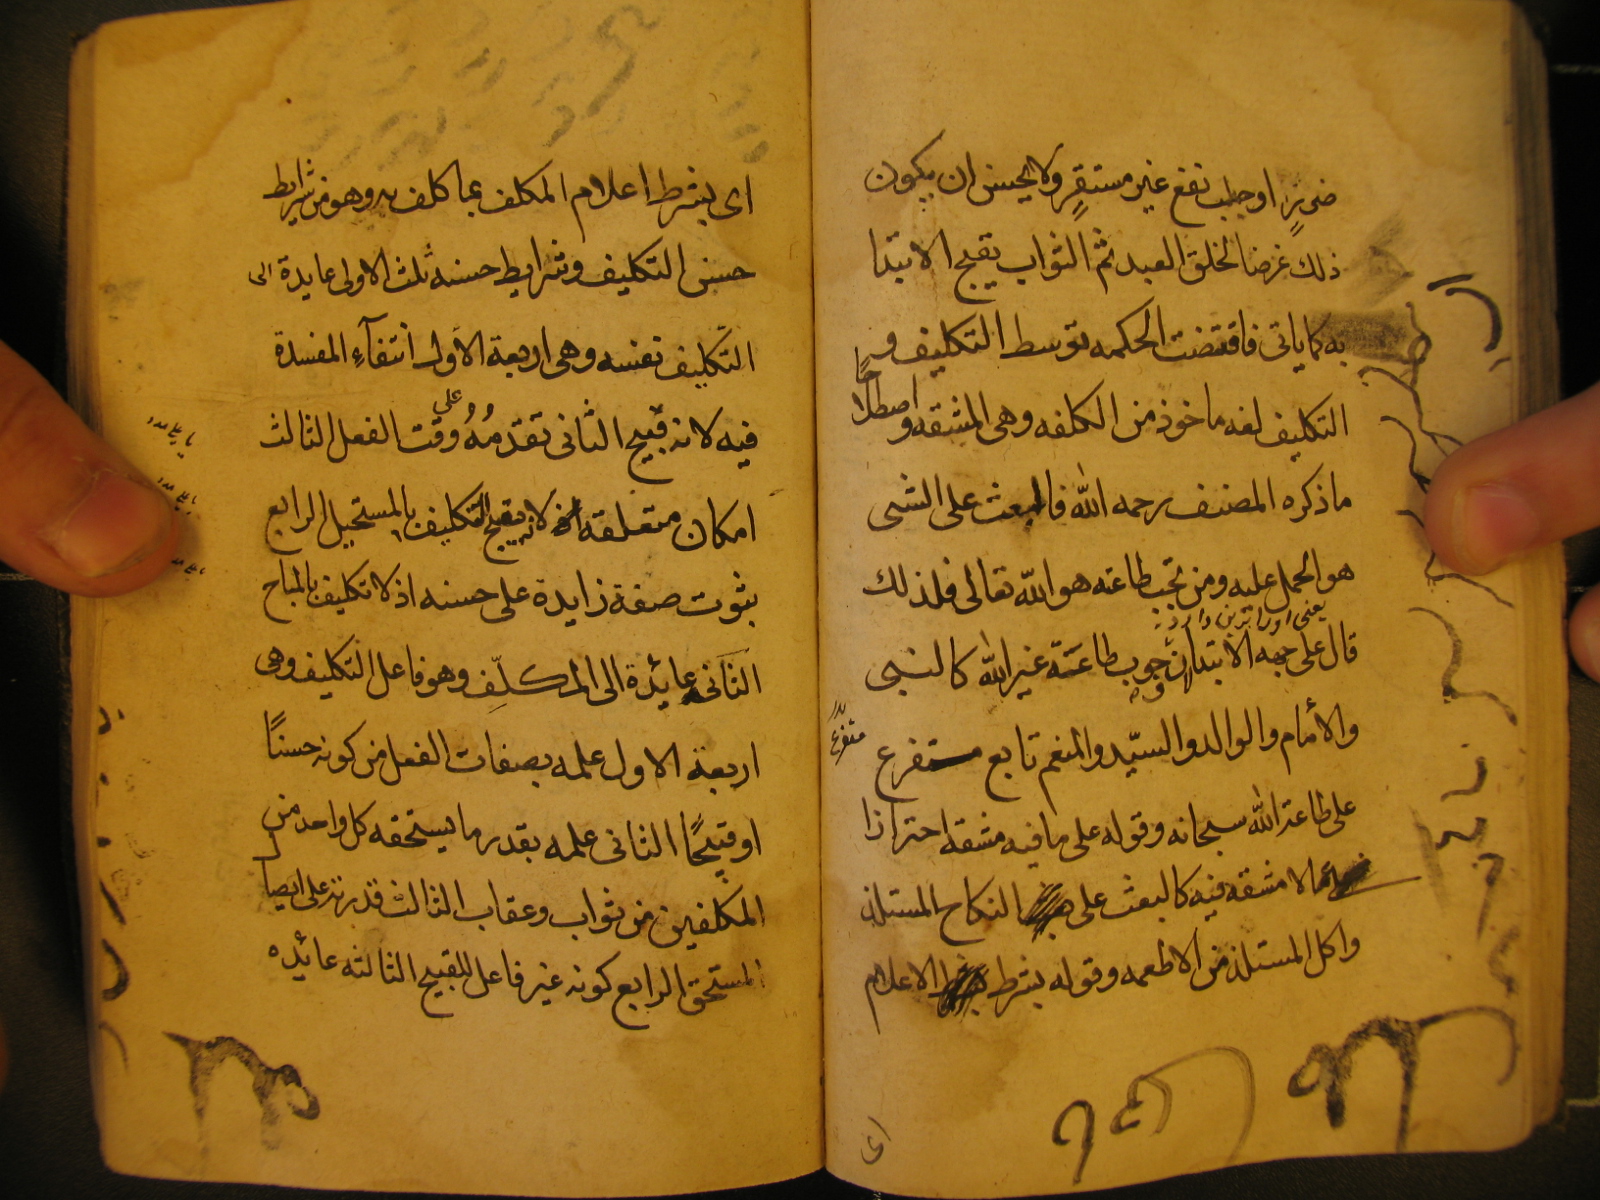 ضرر او جلب نفع غير مستقر ولا يحسن ان يكون
ذلك غرضا لخلق العبد ثم الثواب يقبح الابتدا
به كما ياتى فاقتضت الحكمه توسط التكليف و
التكليف لغه ماخوذ من الكلفه وهى المشقه واصطلاحا
ما ذكره المصنف رحمه الله فالبعث على الشى
هو الحمل عليه ومن تجب طاعته هو الله تعالى فلذلك
قال على جهه الابتدا فان وجوب طاعة غير الله كالنبى
والامام والوالد والسيّد والمنعم تابع متفرع
متفرع
على طاعة الله سبحانه وقوله على ما فيه مشقه احترازا
عما لا مشقه فيه كالبعث على النكاح المستلذ
واكل المستلذ من الاطعمه وقوله بشرط الاعلام
اى
اى بشرط اعلام المكلف بما كلف به وهو من شرايط
حسن التكليف وشرايط حسنه ثلث الاولى عايدة الى
التكليف نفسه وهى اربعة الاول انتفآء المفسدة
فيه لانه قبيح الثانى تقدمه على وقت الفعل الثالث
امكان متعلقه لانه يقبح التكليف بالمستحيل الرابع
ثبوت صفة زايدة على حسنه اذ لا تكليف بالمباح
الثانيه عائدة الى المكلّف وهو فاعل التكليف وهى
اربعة الاول علمه بصفات الفعل من كونه حسنًا
او قبيحًا الثانى علمه بقدر ما يستحقه كل واحد من
المكلفين من ثواب وعقاب الثالث قدرته على ايصال
المستحق الرابع كونه غير فاعل للقبيح الثالثه عائده